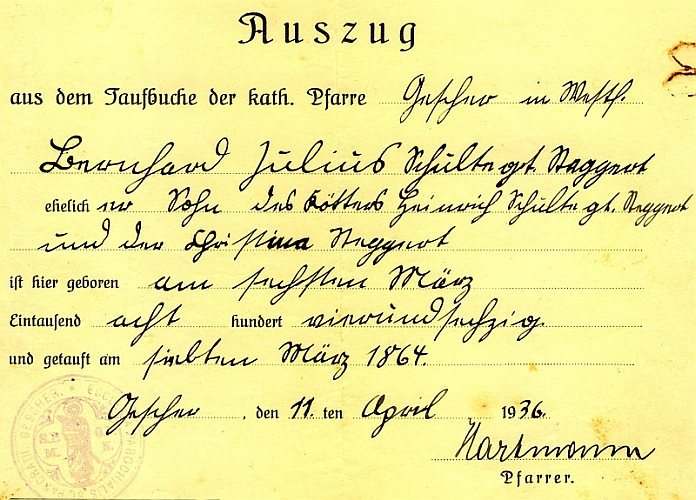 Auszug
aus dem Taufbuche der kath. Pfarre Gescher in Westf.
Bernhard Julius Schulte gt. Steggert
ehelicher Sohn des Kötters Heinrich Schulte gt. Steggert
und der Christina Steggert
ist hier geboren am sechsten März
Eintausend acht hundert vierundsechzig.
und getauft am siebten März 1864.
Gescher, den 11. ten April 1936.
Hartmann
Pfarrer.